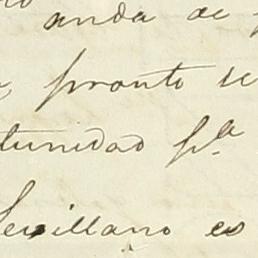 anda de
pronto se
tunidad pª
Sevillano es